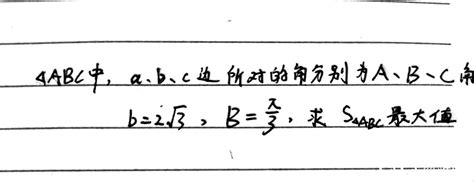 △ABC中, a、b、c边所对的角分别为A、B、C角
b=2√3, B=π/3, 求 S△ABC最大值